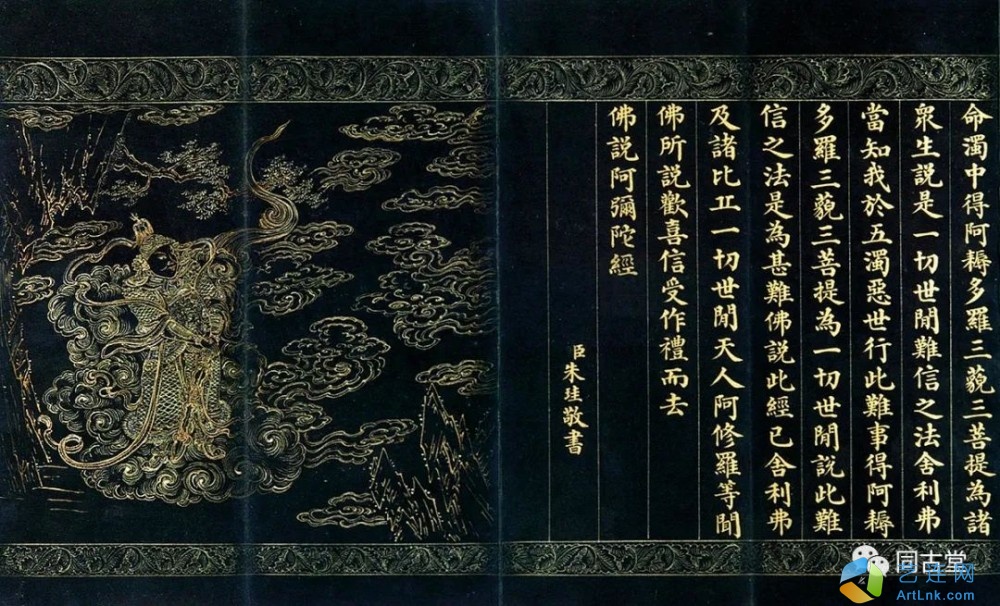 命濁中得阿耨多羅三藐三菩提為諸
衆生説是一切世閒難信之法舍利弗
當知我於五濁惡世行此難事得阿耨
多羅三藐三菩提為一切世閒説此難
信之法是為甚難佛説此經已舍利弗
及諸比丘一切世閒天人阿修羅等聞
佛所説歡喜信受作禮而去
佛説阿彌陀經
臣朱珪敬書
同古堂
艺连网
ArtLnk.com